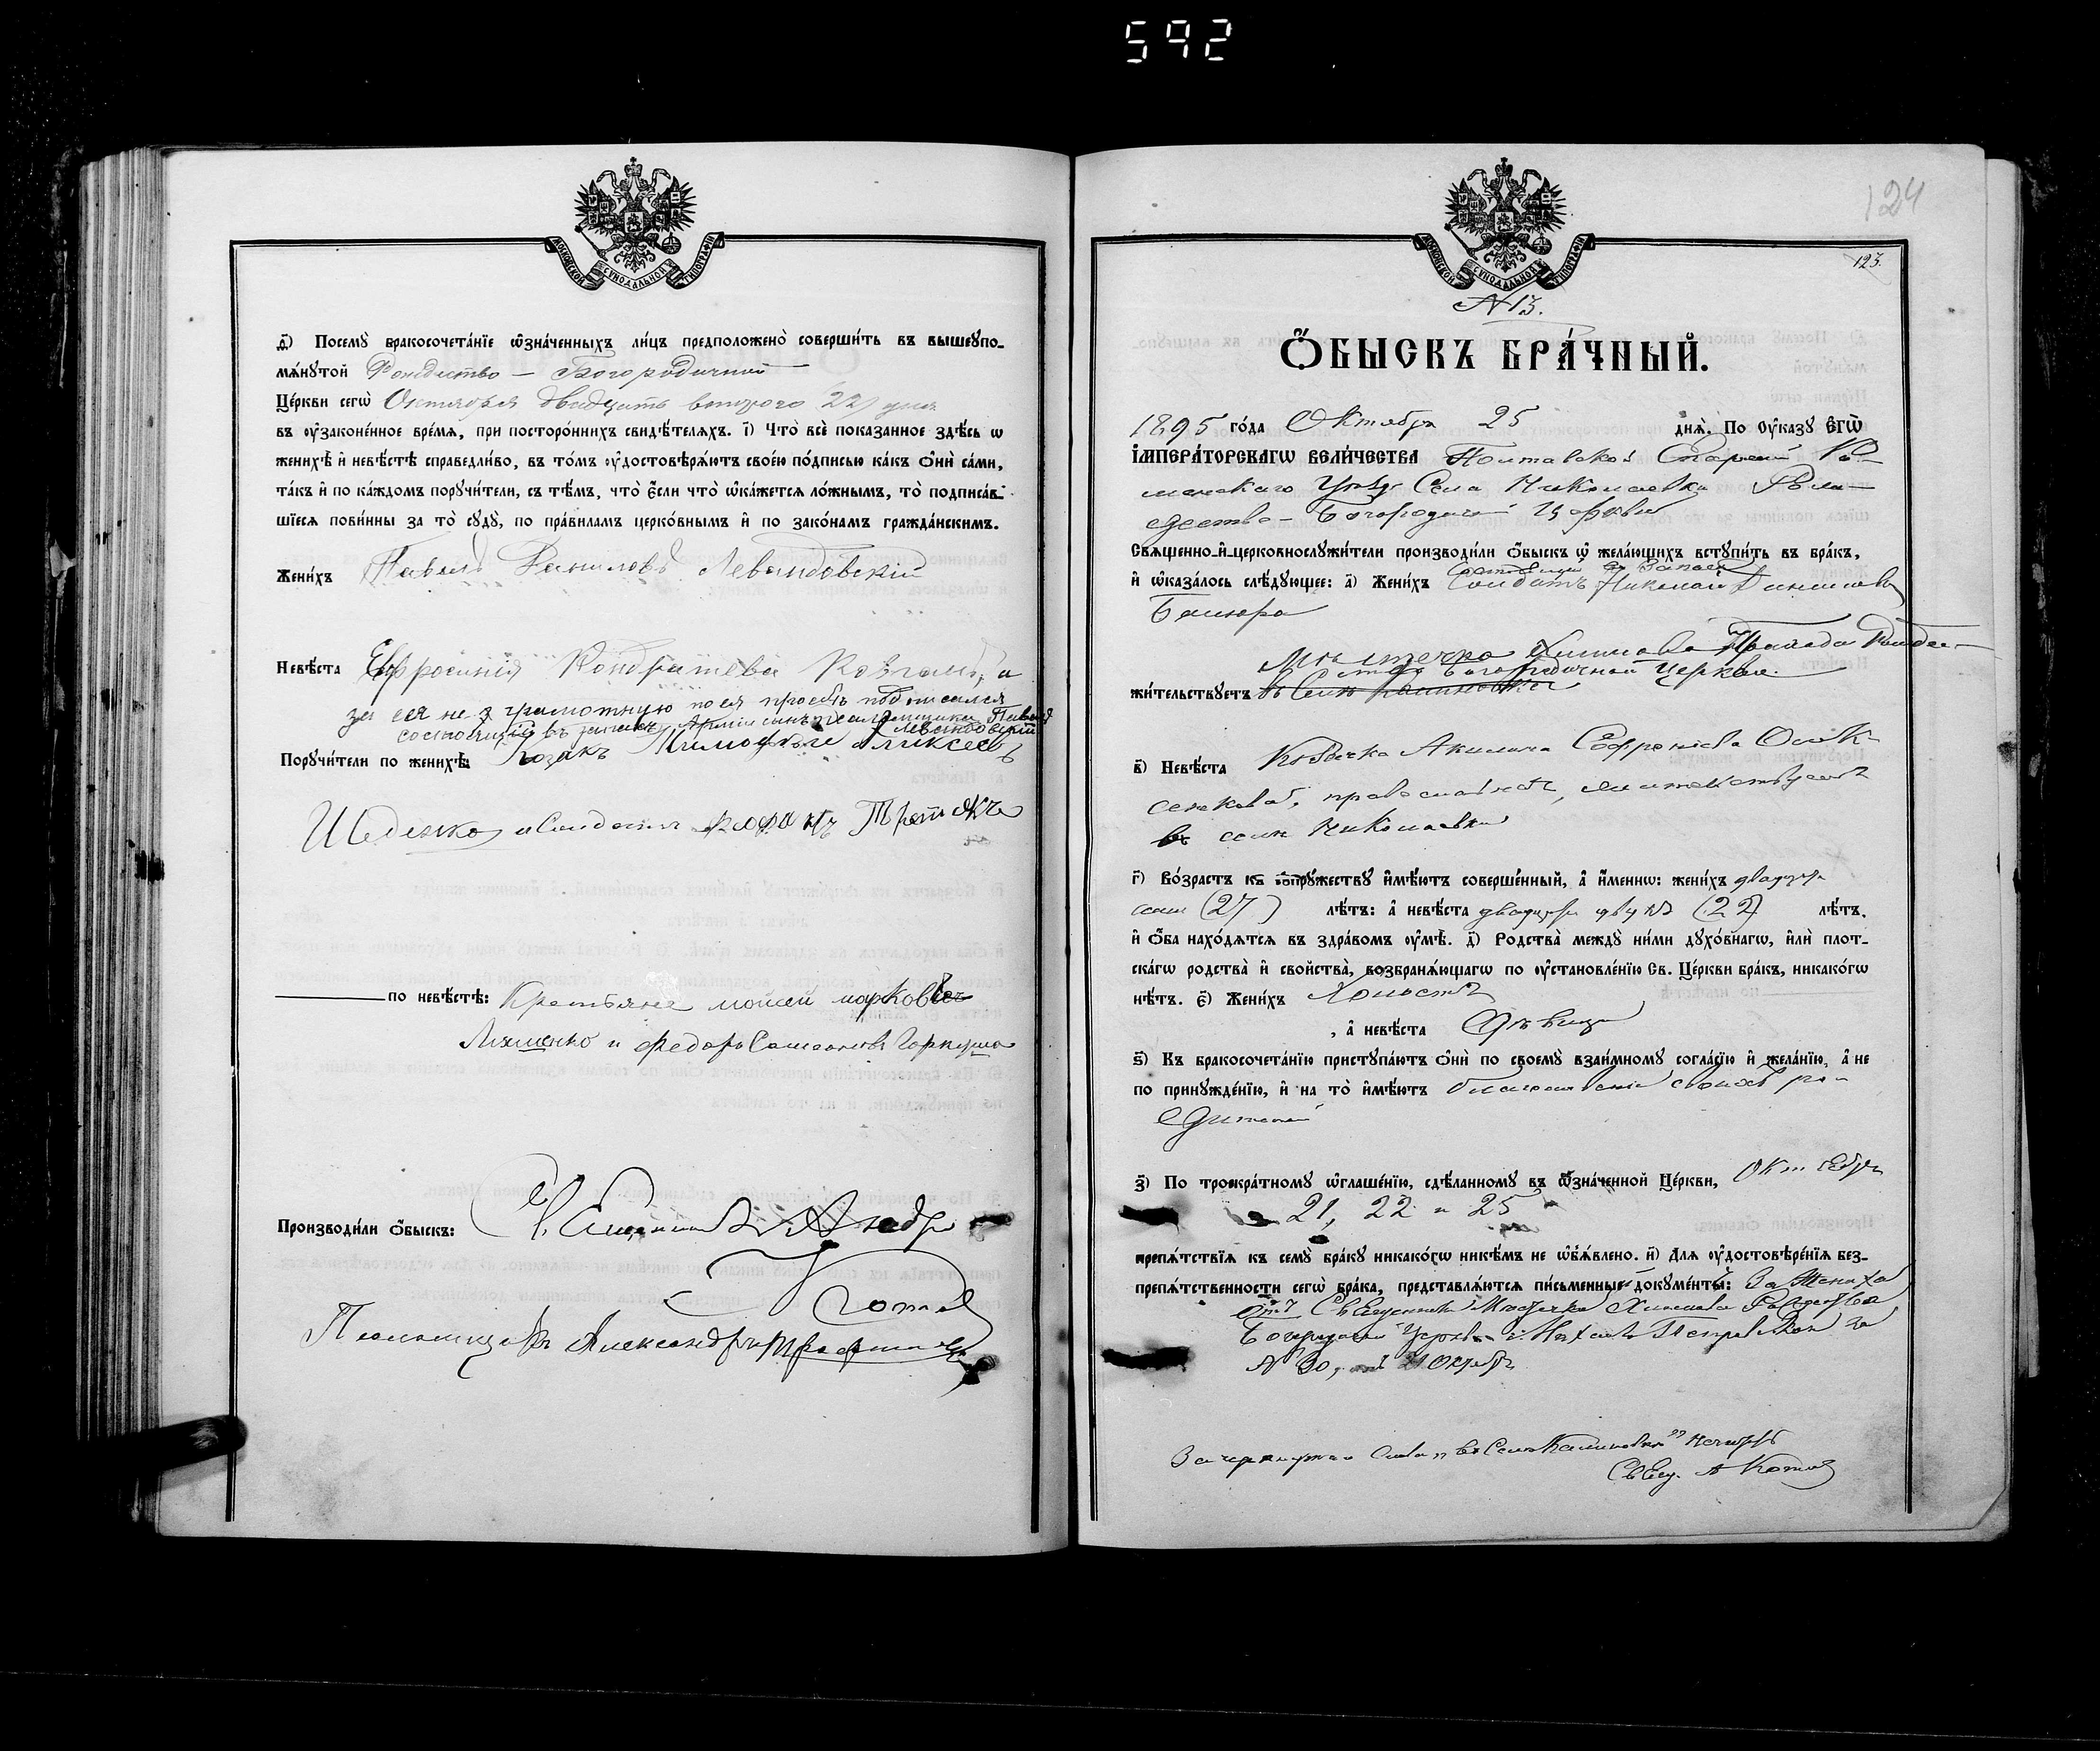 592
МОСКОВСКОЙ СѴНОДАЛЬНОЙ ТИПОГРАФІИ
д҃) Посемꙋ̀ бракосочета́нїе ѡ҆зна́ченныхъ ли́цъ предположено̀ соверши́ть въ вышеꙋпо-
мѧ́нꙋтой Рождество - Богородичной
Це́ркви сегѡ̀ Октября двадцать второго 22 дня
въ ᲂу҆законе́нное вре́мѧ, при посторо́ннихъ свидѣ́телѧхъ. і҃) Что̀ всѐ показанное здѣ́сь ѡ
женихѣ̀ и҆ невѣ́стѣ справедли́во, въ то́мъ ᲂу҆достовѣрѧ́ютъ свое́ю по́дписью ка́къ ѻ҆нѝ са́ми,
та́къ и҆ по ка́ждомъ порꙋчи́тели, съ тѣ́мъ, что̀ є҆́сли что̀ ѡ҆ка́жетсѧ ло́жнымъ, то̀ подписа́в-
шїесѧ пови́нны за то̀ сꙋдꙋ̀, по пра́виламъ церко́внымъ и҆ по зако́намъ гражда́нскимъ.
Жени́хъ Павелъ Даниловъ Левандовскій
Невѣ́ста Евфросинія Кондратева а
за ея не грамотную по ея просьбѣ подписался
состоящій въ запасѣ Арміи сынъ псаломщика Павелъ
Левандовскій
Порꙋчи́тели по женихѣ̀: Козакъ Тимофей Алексеевъ
Шеденко и Солдатъ Третякъ
по невѣ́стѣ: Крестьяне Мойсей Марковъ
Ляшенко и Федоръ Самсоновъ Горкуша
Производи́ли ѻ҆́быскъ: Священникъ Андрей
Котов
Псаломщикъ Александръ
124
МОСКОВСКОЙ СѴНОДАЛЬНОЙ ТИПОГРАФІИ
123.
N 13.
Ѻ҆́БЫСКЪ БРА́ЧНЫЙ.
1895 го́да Октября 25 днѧ̀. По ᲂу҆казꙋ Є҆гѡ̀
І҆мпера́торскагѡ Вели́чества Полтавской Епархіи Ро-
менскаго Уѣзда Села Николаевки Рож-
дество - Богородичной Церкви
Свѧщенно-и҆-церковнослꙋжи́тели производи́ли ѻ҆́быскъ ѡ҆ жела́ющихъ встꙋпи́ть въ бра́къ,
и҆ ѡ҆каза́лось слѣ́дꙋющее: а҃) Жени́хъ Солдатъ Николай Даниловъ
состоящій въ Запасѣ
мѣстечка Хмилова Прихода Рождес-
тво Богородичной Церкви.
жи́тельствꙋетъ въ Селѣ Калиновки
в҃) Невѣ́ста Козачка Акилина Софроніева
православная, жительствуетъ
въ селѣ Николаевки
г҃) Во́зрастъ къ сꙋпрꙋ́жествꙋ и҆мѣ́ютъ соверше́нный, а҆ и҆́менно: жени́хъ двадцати
семи (27) лѣ́тъ: а҆ невѣ́ста двадцати двухъ (22) лѣ́тъ.
и҆ ѻ҆́ба нахо́дѧтсѧ въ здра́вомъ ᲂу҆мѣ̀. д҃) Родства̀ междꙋ̀ ни́ми дꙋхо́внагѡ, и҆лѝ плот-
ска́гѡ родства̀ и҆ свойства̀, возбранѧ́ющагѡ по ᲂу҆становле́нїю Св. Це́ркви бра́къ, никако́гѡ
нѣ́тъ. є҃) Жени́хъ Холостъ
, а҆ невѣ́ста дѣвица
ѕ҃) Къ бракосочета́нїю пристꙋпа́ютъ ѻ҆нѝ по своемꙋ̀ взаи́мномꙋ согла́сїю и҆ жела́нїю, а҆ не
по принꙋжде́нїю, и҆ на то̀ и҆мѣ́ютъ благословеніе своихъ ро-
дителей
з҃) По троекра́тномꙋ ѡ҆глаше́нїю, сдѣ́ланномꙋ въ ѻ҆зна́ченной Це́ркви, Октября
21, 22 и 25
препѧ́тствїѧ къ семꙋ̀ бра́кꙋ никако́гѡ никѣ́мъ не ѡ҆б̾ѧ́влено. и҃) Длѧ ᲂу҆достовѣре́нїѧ без-
препѧ́тственности сегѡ̀ бра́ка, представлѧ́ютсѧ пи́сьменные докꙋме́нты: За Жениха
отъ Священника Мѣстечка Хмилова Рождество
Богородичной Церкви Михаила Петровскаго за
N 30, отъ 21 Октября
Зачеркнутыя слова „въ Селѣ Калиновки" не читать
Свящ. А Котов